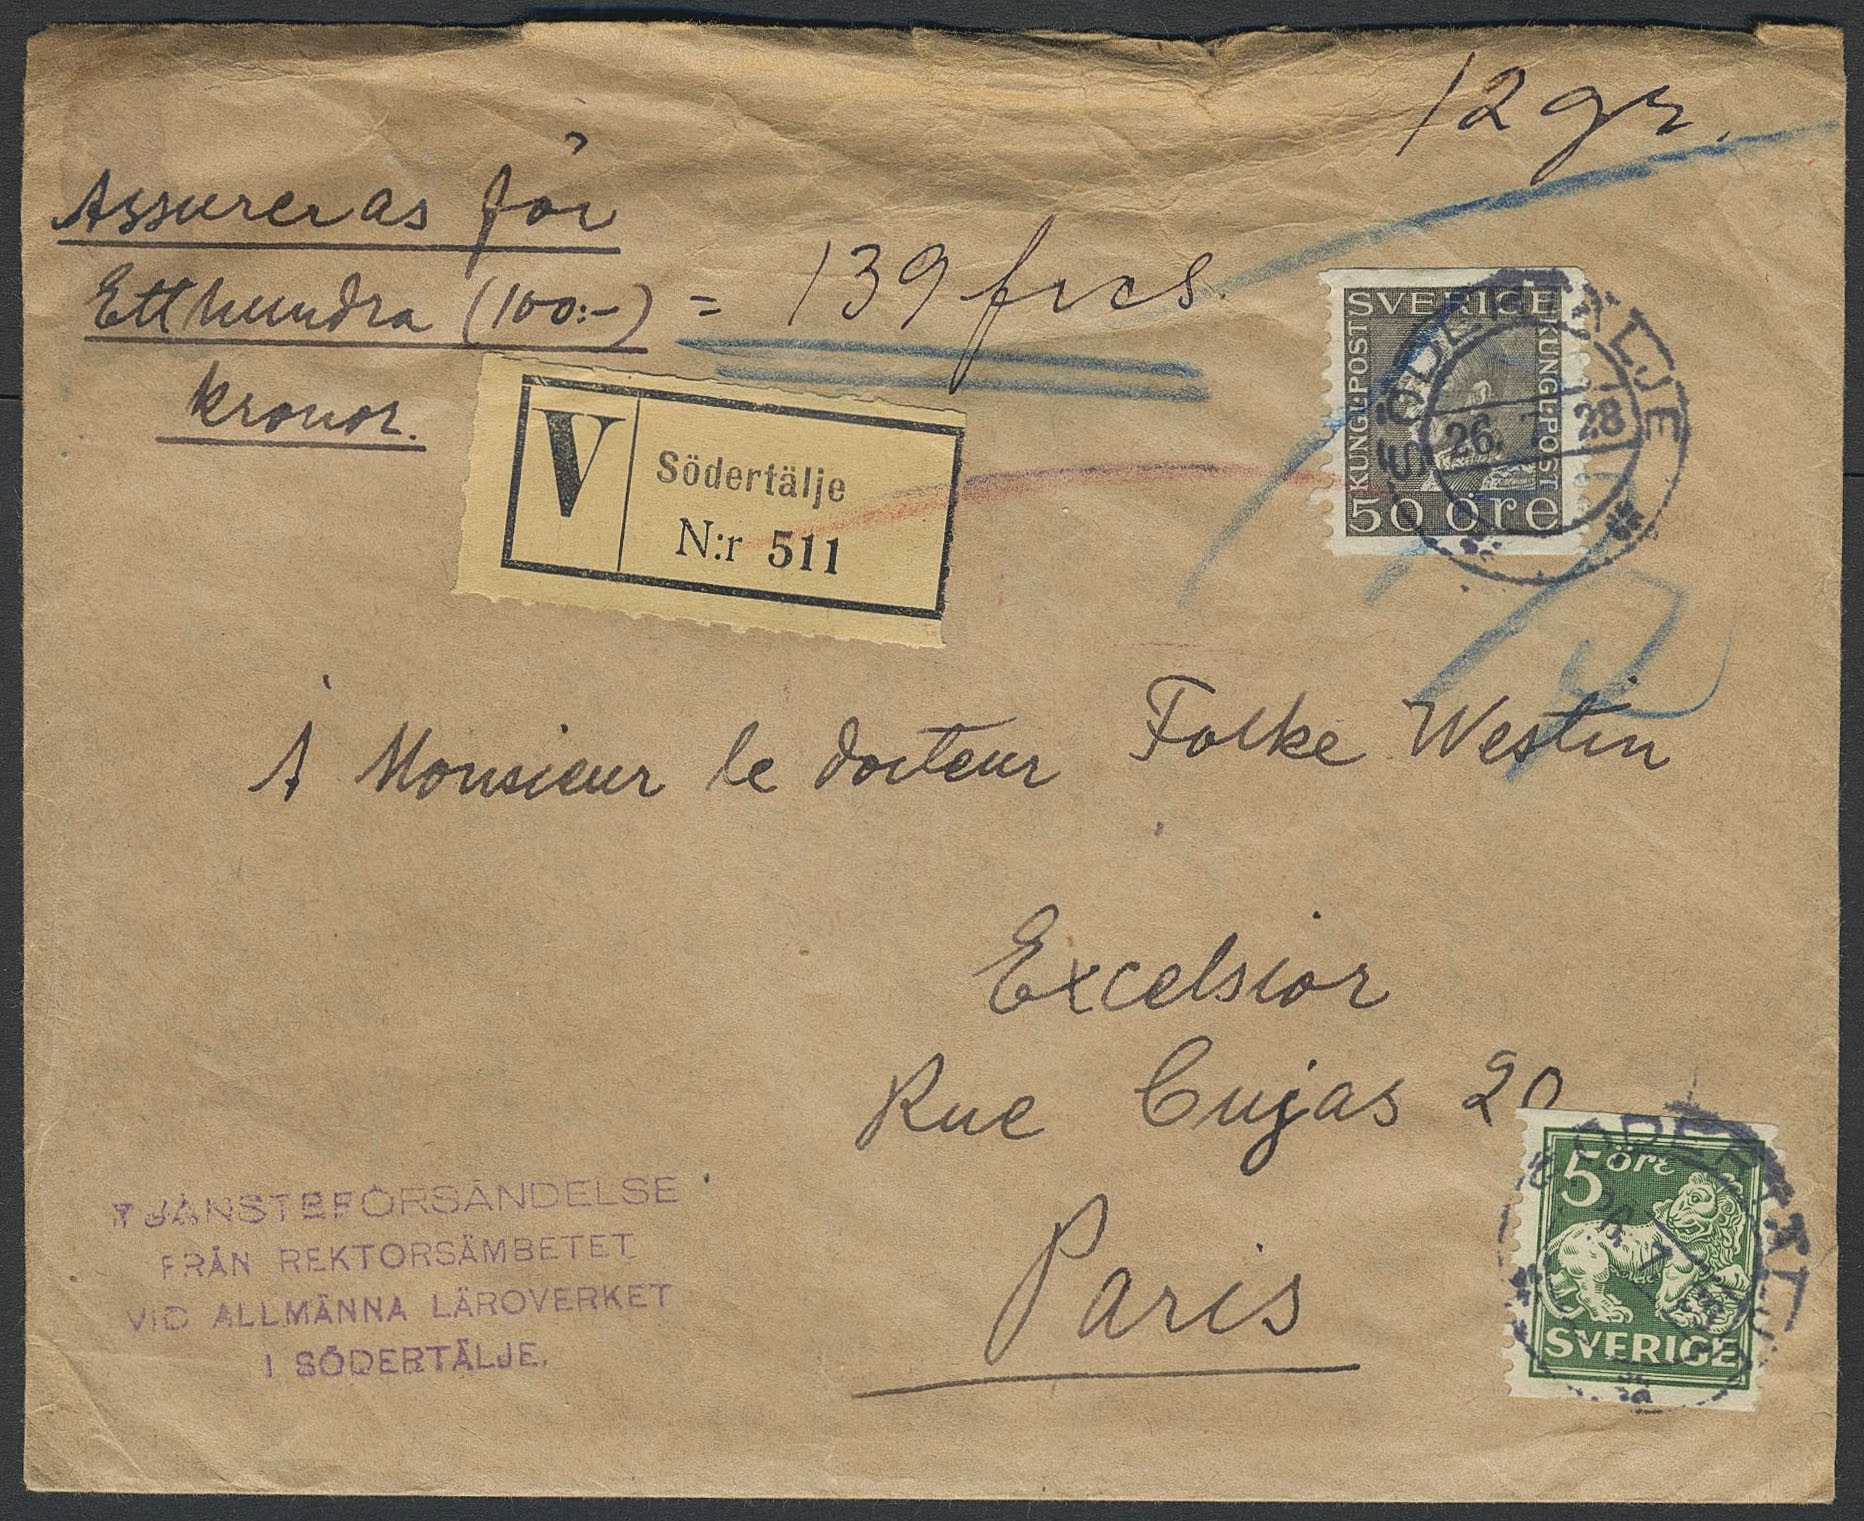 12 gr.
Assureras för
Etthundra (100:-) = 139 frcs.
kronor.
V
Södertälje
N:r 511
SVERIGE
KUNGL POST
KUNGL POST
50 öre
SÖDERTÄLJE
26. 28
À Monsieur le docteur Folke Westin
Excelsior
Rue Cujas 20
Paris
TJÄNSTEFÖRSÄNDELSE
FRÅN REKTORSÄMBETET
VID ALLMÄNNA LÄROVERKET
I SÖDERTÄLJE.
5 öre
SVERIGE